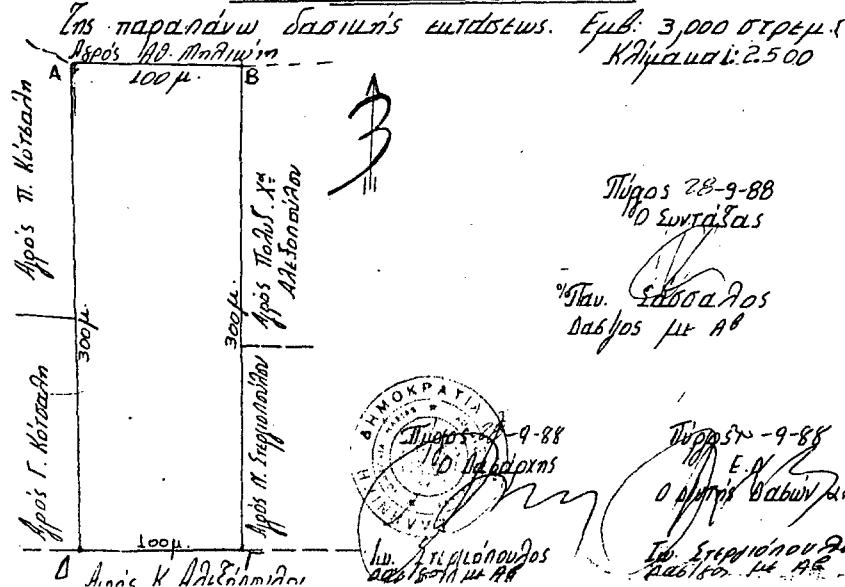 της παραπάνω δασικής εκτάσεως. Εμβ: 3,000 στρεμ.
Κλίμακα 1:2.500
Αγρός Αθ. Μηλιώτη
Α
Β
100μ.
Αγρός Π. Κότσαλη
Αγρός Γ. Κότσαλη
300μ.
300μ.
Αγρός Πολυδ. Χα
Αλεξοπούλου
Αγρός Ν. Στεργιοπούλου
100μ.
Δ
Γ
Αγρός Κ. Αλεξόπουλου
Πύργος 28-9-88
Ο Συντάξας
Παν. Σάσσαλος
Δασ/γος με Αβ
ΔΗΜΟΚΡΑΤΙΑ
Πύργος -9-88
Ο Δασάρχης
Ιω. Στεργιόπουλος
Δασ/γος με Αβ
Πύργος -9-88
Ε.Δ
Ο Δ/ντής Δασών
Ιω. Στεργιόπουλος
Δασ/γος με Αβ